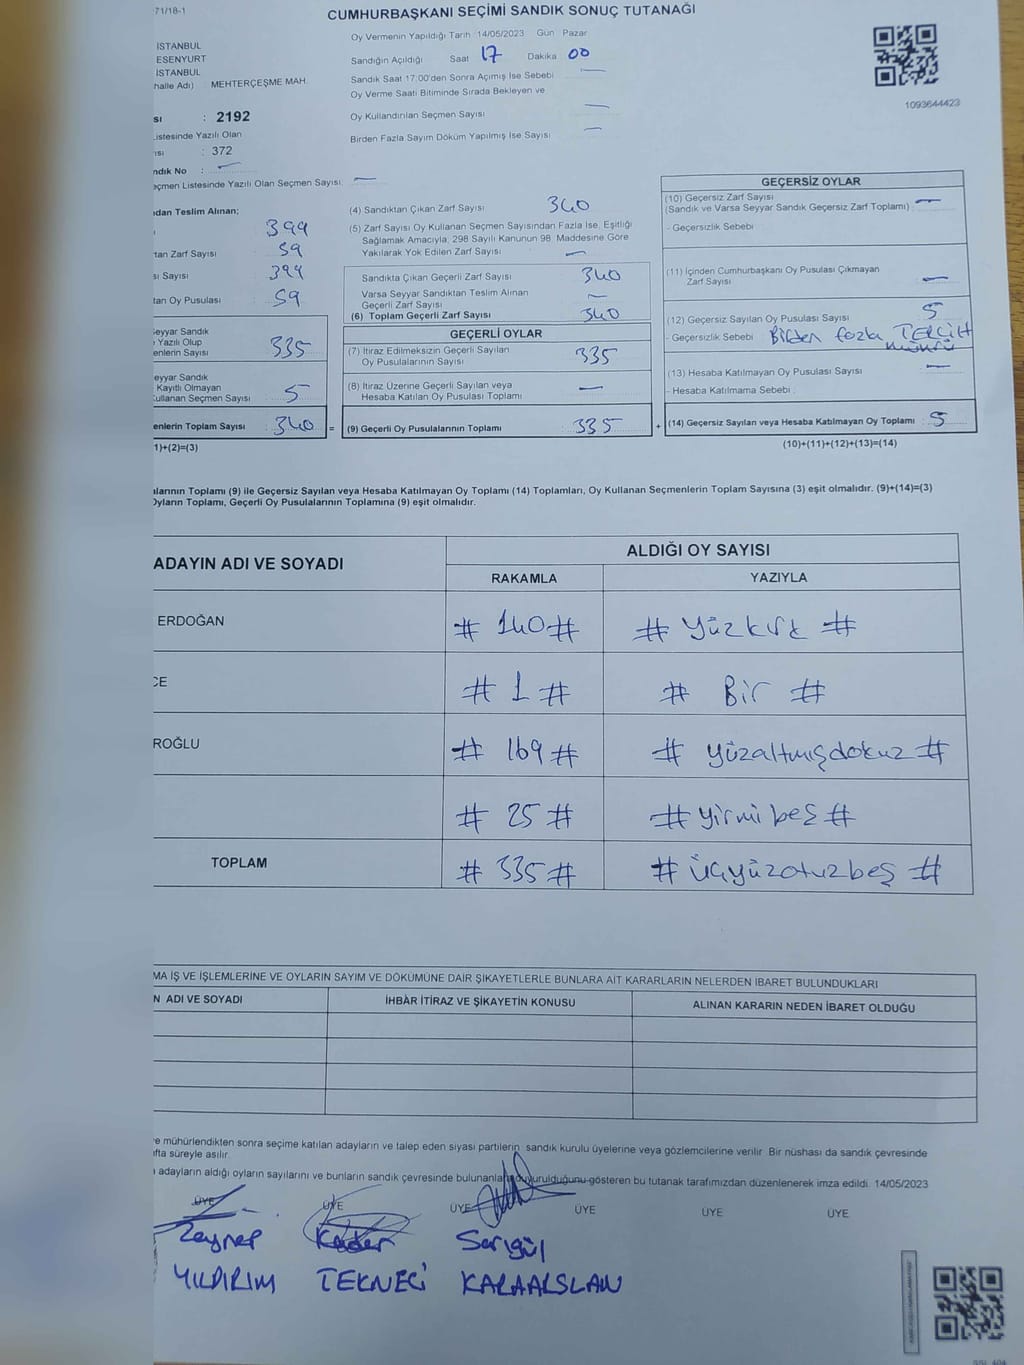 71/18-1
CUMHURBAŞKANI SEÇİMİ SANDIK SONUÇ TUTANAĞI
Oy Vermenin Yapıldığı Tarih 14/05/2023 Gün Pazar
İSTANBUL
ESENYURT
İSTANBUL
halle Adı) MEHTERÇEŞME MAH.
Sandığın Açıldığı Saat 17 Dakika 00
Sandık Saat 17:00'den Sonra Açımış İse Sebebi —
Oy Verme Saati Bitiminde Sırada Bekleyen ve
Oy Kullandırılan Seçmen Sayısı —
Birden Fazla Sayım Döküm Yapılmış İse Sayısı —
1093644423
sı : 2192
Listesinde Yazılı Olan
ısı : 372
ndık No : —
eçmen Listesinde Yazılı Olan Seçmen Sayısı: —
ndan Teslim Alınan;
399
tan Zarf Sayısı 59
sı Sayısı 394
tan Oy Pusulası 59
eyyar Sandık
Yazılı Olup
enlerin Sayısı 335
eyyar Sandık
Kayıtlı Olmayan
ullanan Seçmen Sayısı 5
enlerin Toplam Sayısı 340 =
1)+(2)=(3)
(4) Sandıktan Çıkan Zarf Sayısı 340
(5) Zarf Sayısı Oy Kullanan Seçmen Sayısından Fazla İse, Eşitliği
Sağlamak Amacıyla; 298 Sayılı Kanunun 98. Maddesine Göre
Yakılarak Yok Edilen Zarf Sayısı —
Sandıkta Çıkan Geçerli Zarf Sayısı 340
Varsa Seyyar Sandıktan Teslim Alınan
Geçerli Zarf Sayısı —
(6) Toplam Geçerli Zarf Sayısı 340
GEÇERLİ OYLAR
(7) İtiraz Edilmeksizin Geçerli Sayılan
Oy Pusulalarının Sayısı 335
(8) İtiraz Üzerine Geçerli Sayılan veya
Hesaba Katılan Oy Pusulası Toplamı —
(9) Geçerli Oy Pusulalarının Toplamı 335 +
GEÇERSİZ OYLAR
(10) Geçersiz Zarf Sayısı
(Sandık ve Varsa Seyyar Sandık Geçersiz Zarf Toplamı) —
- Geçersizlik Sebebi
(11) İçinden Cumhurbaşkanı Oy Pusulası Çıkmayan
Zarf Sayısı —
(12) Geçersiz Sayılan Oy Pusulası Sayısı 5
- Geçersizlik Sebebi Birden fazla TERCİH
mührü
(13) Hesaba Katılmayan Oy Pusulası Sayısı —
- Hesaba Katılmama Sebebi
(14) Geçersiz Sayılan veya Hesaba Katılmayan Oy Toplamı 5
(10)+(11)+(12)+(13)=(14)
larının Toplamı (9) ile Geçersiz Sayılan veya Hesaba Katılmayan Oy Toplamı (14) Toplamları, Oy Kullanan Seçmenlerin Toplam Sayısına (3) eşit olmalıdır. (9)+(14)=(3)
Oyların Toplamı, Geçerli Oy Pusulalarının Toplamına (9) eşit olmalıdır.
ADAYIN ADI VE SOYADI
ALDIĞI OY SAYISI
RAKAMLA YAZIYLA
ERDOĞAN # 140 # # Yüzkırk #
CE # 1 # # Bir #
ROĞLU # 169 # # yüzaltmışdokuz #
# 25 # # yirmi beş #
TOPLAM # 335 # # üçyüzotuzbeş #
MA İŞ VE İŞLEMLERİNE VE OYLARIN SAYIM VE DÖKÜMÜNE DAİR ŞİKAYETLERLE BUNLARA AİT KARARLARIN NELERDEN İBARET BULUNDUKLARI
N ADI VE SOYADI İHBAR İTİRAZ VE ŞİKAYETİN KONUSU ALINAN KARARIN NEDEN İBARET OLDUĞU
e mühürlendikten sonra seçime katılan adayların ve talep eden siyasi partilerin, sandık kurulu üyelerine veya gözlemcilerine verilir. Bir nüshası da sandık çevresinde
fta süreyle asılır.
adayların aldığı oyların sayılarını ve bunların sandık çevresinde bulunanlara duyurulduğunu gösteren bu tutanak tarafımızdan düzenlenerek imza edildi. 14/05/2023
ÜYE ÜYE ÜYE ÜYE ÜYE ÜYE
Zeynep Kader Sarıgül
YILDIRIM TEKNECİ KARAARSLAN